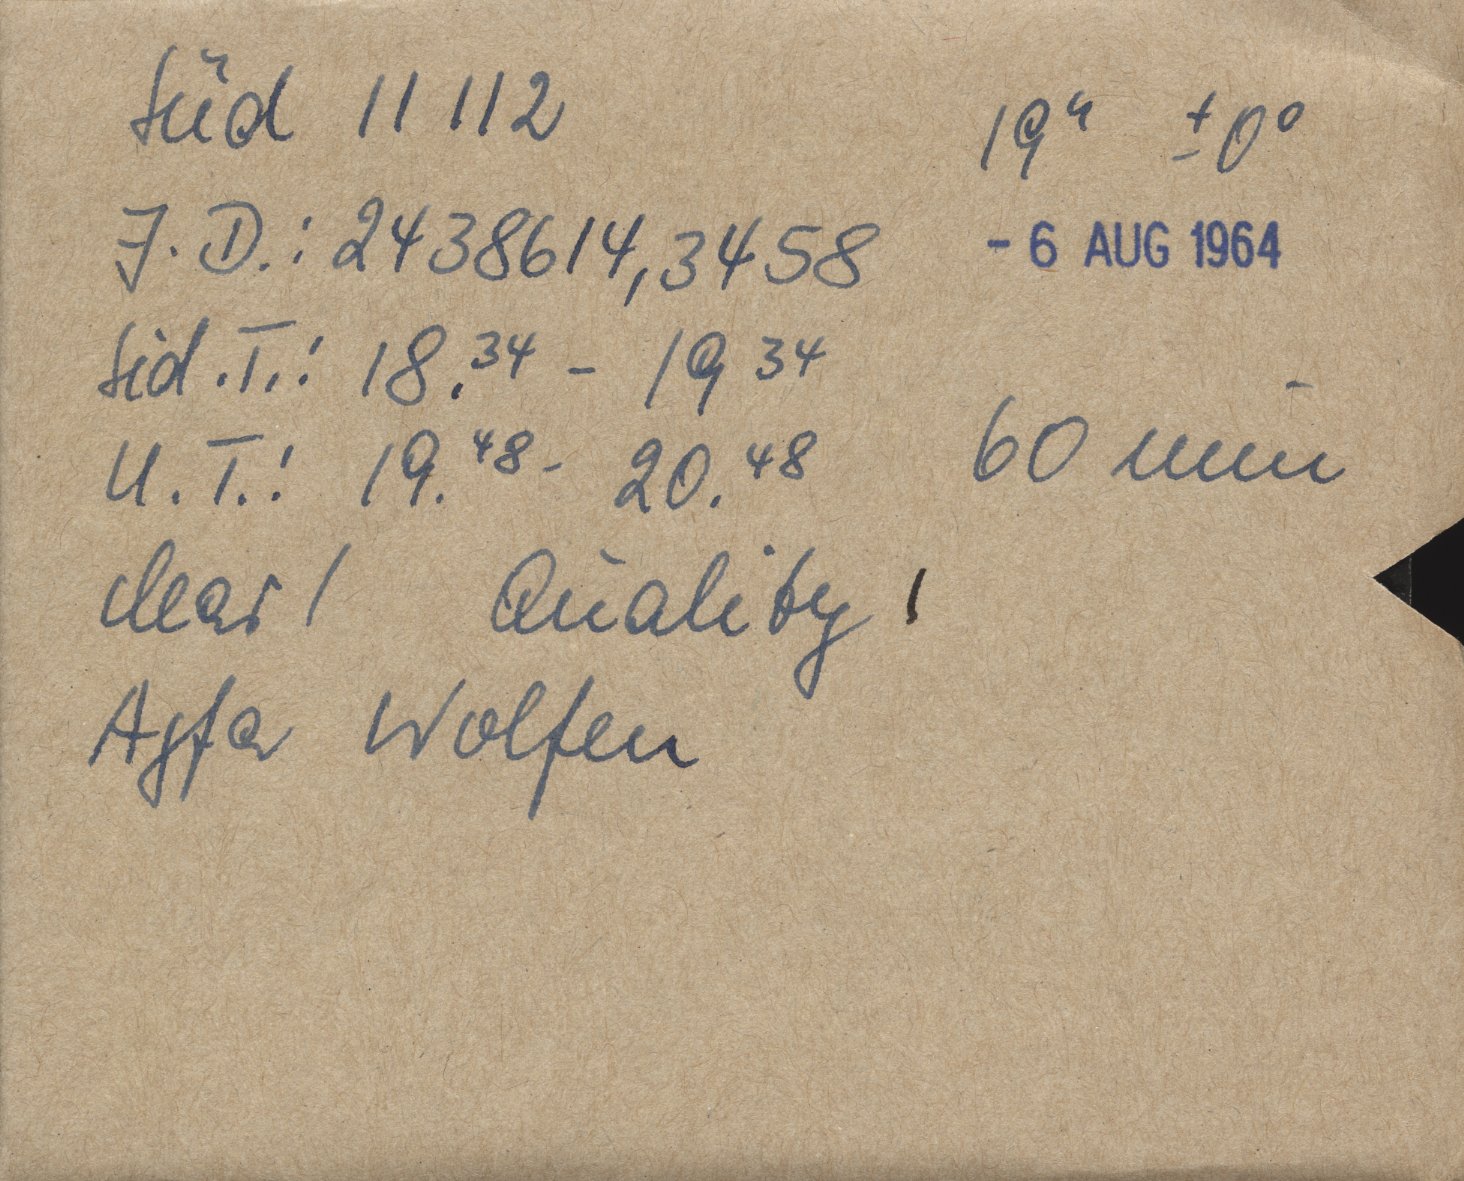 Süd 11112 19ʰ ±0°
J.D.: 2438614,3458 - 6 AUG 1964
Sid.T.: 18.³⁴ - 19 ³⁴
U.T.: 19.⁴⁸ - 20.⁴⁸ 60 min
clear! Quality 1
Agfa Wolfen